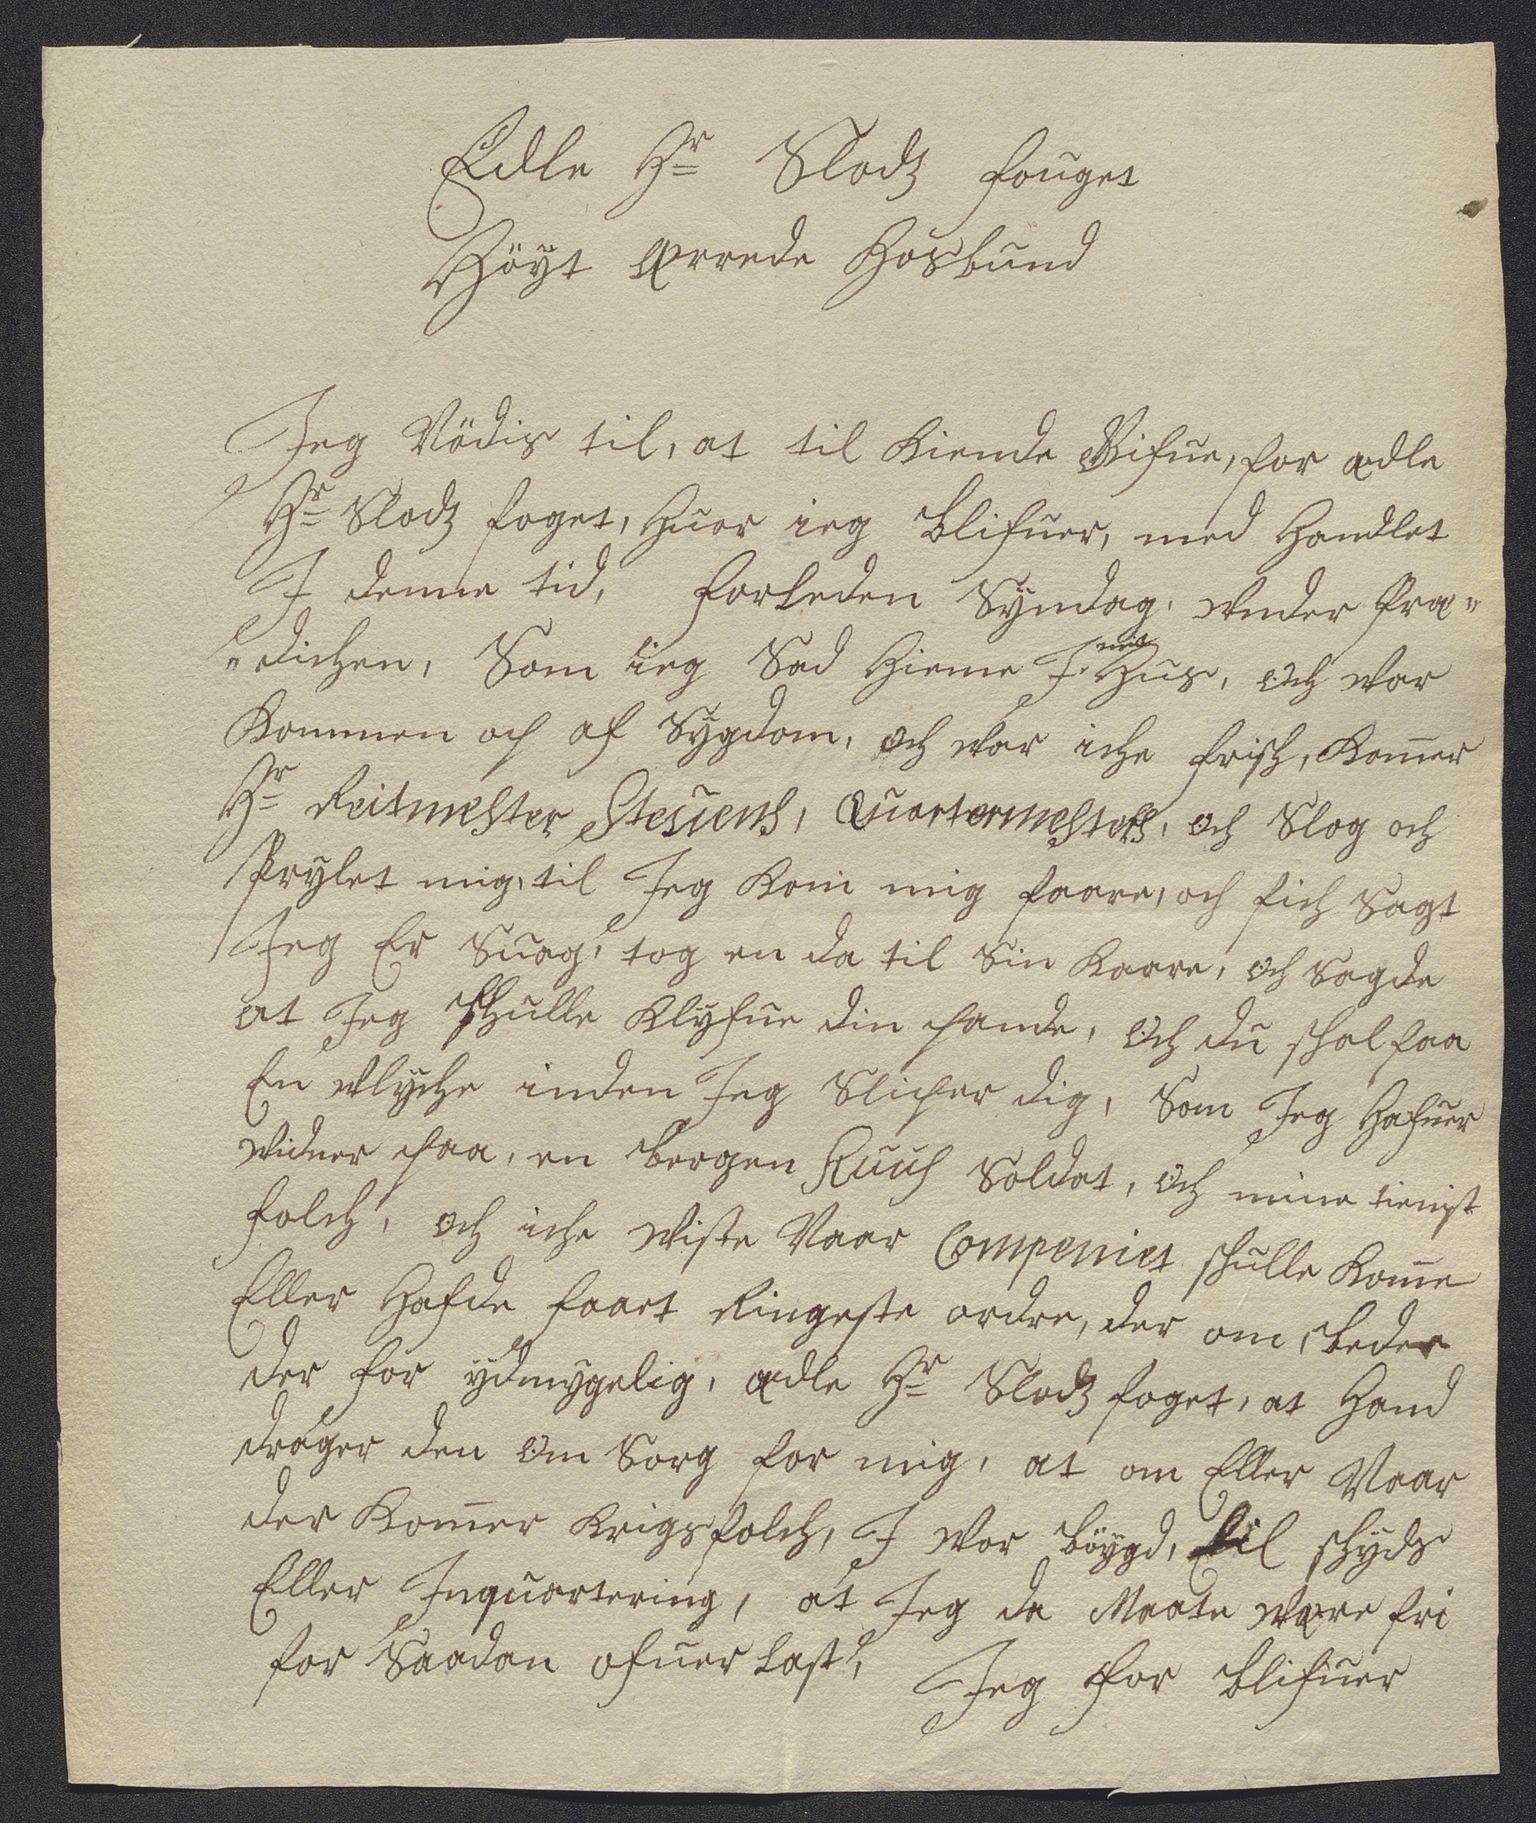 Edle Hr Slodz fouget
Höyt Ærrede Hosbund
Jeg Nödis til, at til Kiende Gifue, for ædle
Hr Slodz foget, Huor ieg blifuer, med Handlet
J denne tid, forleden Syndag, under Præ„
„dichen, Som ieg Sad Hieme J mit Hus, och war
Kommen op af Sygdom, och war iche frisk, Kom̅er
Hr Reitmester Steuens, Quartermesters, och Slog och
Prylet mig, til Jeg Kom mig faare, och fich Sagt
Jeg Er Suag, tog en da til Sin Kaare, och Sagde
at Jeg skulle Klyfue din pande, och du skal faa
En Ulyche inden Jeg Sliper dig, Som Jeg Hafuer
widner paa, en bergen Soldat, och mine tienist
folch, och iche wiste Naar Compeniet skulle Kom̅e
Eller Hafde faaet Ringeste ordre, der om, beder
der for ydmygelig, ædle Hr Slodz foget, at Hand
drager den Om Sorg for mig, at om Eller Naar
der Kom̅er Krigsfolch, J wor böygd, til skyds
Eller Inquartering, at Jeg da Maate være fri
for Saadan ofuer Last, Jeg for blifuer